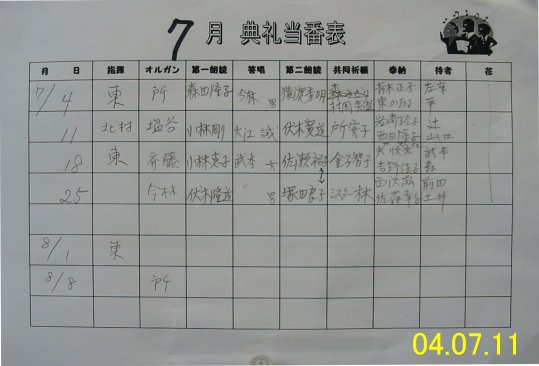 7月 典礼当番表
月 日 指揮 オルガン 第一朗読 答唱 第二朗読 共同祈願 奉納 侍者 花
7/4 東 所 森田隆子 今林 男 青木正子 左京
東かたな 平
11 北村 塩谷 小林剛 大江 誠 伏木寛道 所安子 岩崎玲子 辻
西田淳子 山口
18 東 斉藤 小林恵子 武本 女 佐瀬裕子 金子智子 武本
吉野佳子 森
25 今林 伏木隆道 〃 男 塚田良子 シスター林 前田
佐藤幸子 土井
8/1 東
8/8 所
04.07.11